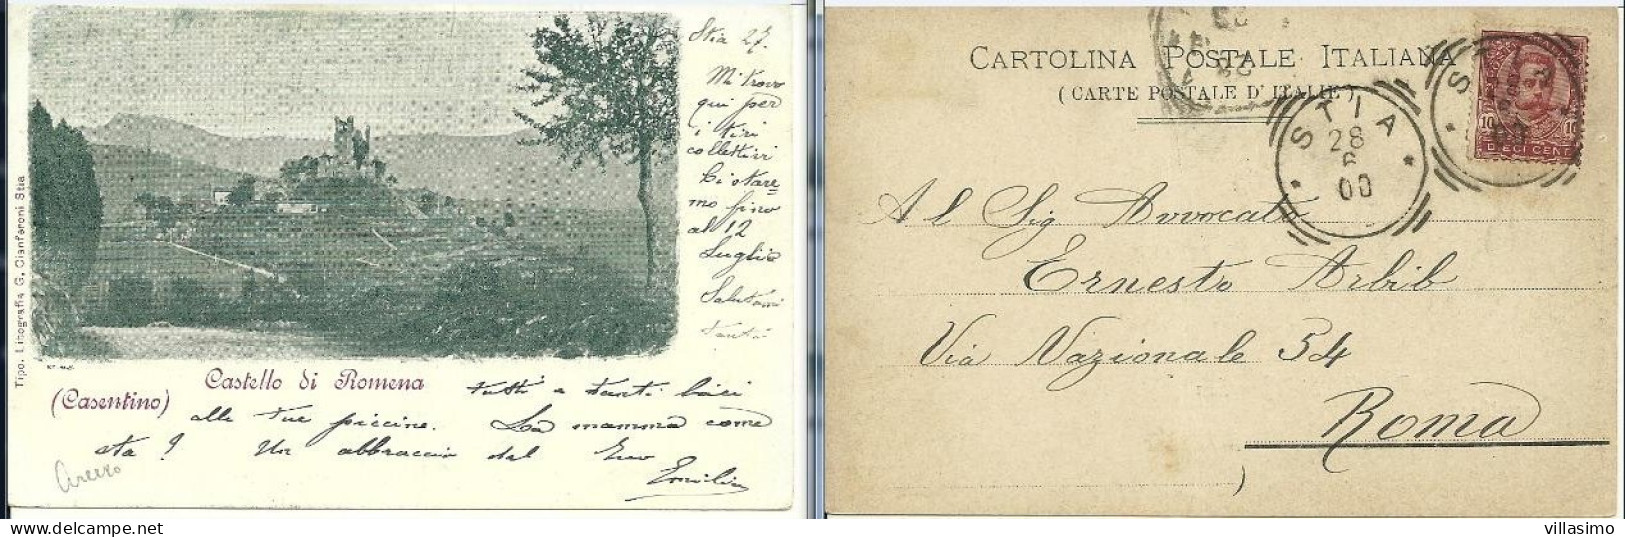 Stia 27.
Mi trovo
qui per
i tiri
collettivi
Ci stare=
mo fino
al 12
Luglio
Salutami
tanti
Tipo. Litografia G. Cianferoni Stia
Castello di Romena
(Casentino)
tutti e tanti baci
alle tue piccine. La mamma come
sta? Un abbraccio dal tuo
Emilio
Arezzo
CARTOLINA POSTALE ITALIANA
(CARTE POSTALE D'ITALIE)
STIA
28
6
00
10
10
DIECI CENT
Al Sig Avvocato
Ernesto Arbib
Via Nazionale 54
Roma
villasimo